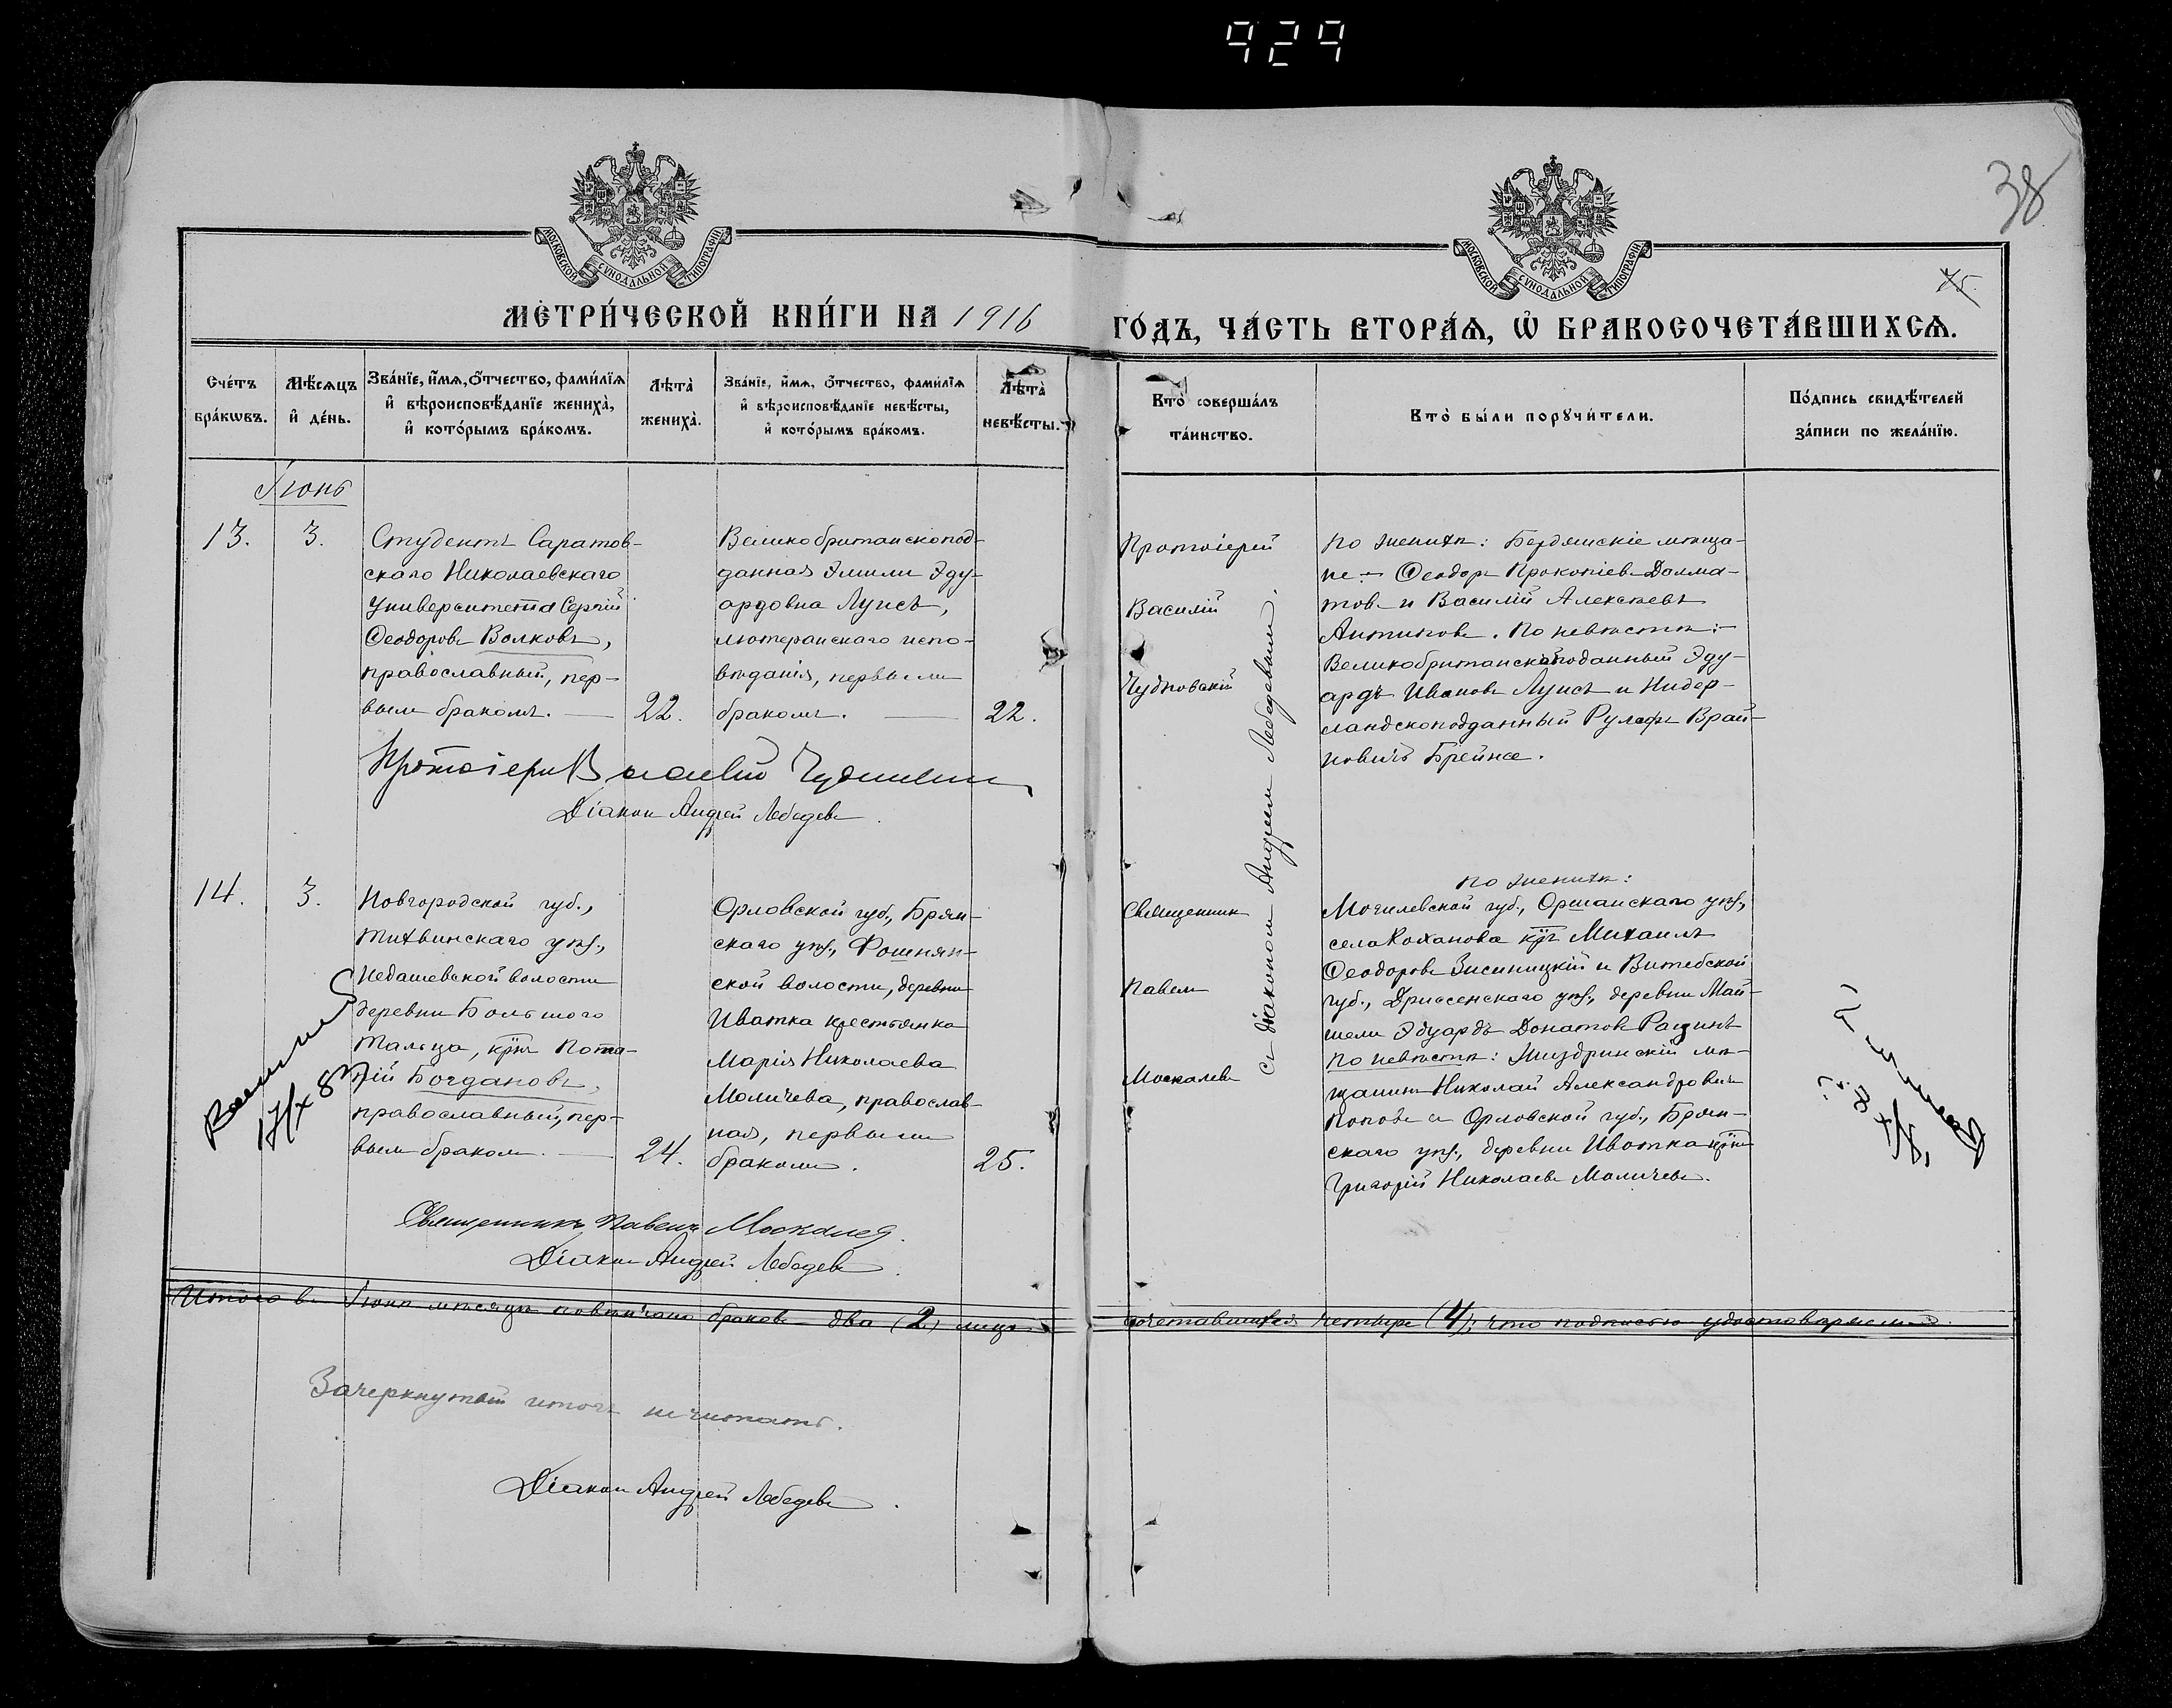 929
38
75.
МОСКОВСКОЙ СѴНОДАЛЬНОЙ ТИПОГРАФІИ
МЕТРИ́ЧЕСКОЙ КНИ́ГИ НА 1916
МОСКОВСКОЙ СѴНОДАЛЬНОЙ ТИПОГРАФІИ
ГО́ДЪ, ЧА́СТЬ ВТОРА́Я, Ѽ БРАКОСОЧЕТА́ВШИХСЯ.
Сче́тъ
бра́кѡвъ.
Мѣ́сяцъ
и҆ де́нь.
Зва́нїе, и҆́мя, ѻ҆́тчество, фами́лїя
и҆ вѣроисповѣ́данїе жениха̀,
и҆ кото́рымъ бра́комъ.
Лѣта̀
жениха̀.
Зва́нїе, и҆́мя, ѻ҆́тчество, фами́лїя
и҆ вѣроисповѣ́данїе невѣ́сты,
и҆ кото́рымъ бра́комъ.
Лѣта̀
невѣ́сты.
Кто̀ соверша́лъ
та́инство.
Кто̀ бы́ли порꙋчи́тели.
По́дпись свидѣ́телей
за́писи по жела́нїю.
Іюнь
13.
3.
Студентъ Саратов-
скаго Николаевскаго
Университета Сергій
Ѳеодоровъ Волковъ,
православный, пер-
вымъ бракомъ. —
22.
Великобританскопод-
данная Эмили Эду-
ардовна Луисъ,
лютеранскаго испо-
вѣданія, первымъ
бракомъ. —
22.
Протоіерей
Василій
Чудновскій
съ діакономъ Андреемъ Лебедевымъ.
По женихѣ: Бердянскіе мѣща-
не:— Ѳеодоръ Прокопіевъ Долма-
товъ и Василій Алексѣевъ
Антиповъ. По невѣстѣ:—
Великобританскоподанный Эду-
ардъ Ивановъ Луисъ и Нидер-
ландскоподданный Рулофъ Врай-
новичъ Брейнсе.
Протоіерей Василій Чудновскій
Діаконъ Андрей Лебедевъ.
14.
3.
Новгородской губ.,
Тихвинскаго уѣз.,
Недашевской волости
деревни Большого
Тальца, крн̃ъ Пота-
пій Богдановъ,
православный, пер-
вымъ бракомъ. —
24.
Орловской губ., Брян-
скаго уѣз., Фошнян-
ской волости, деревни
Ивотка крестьянка
Марія Николаева
Моличева, православ-
ная, первымъ
бракомъ.
25.
Священникъ
Павелъ
Москалевъ
по женихѣ:
Могилевской губ., Оршанскаго уѣз.,
села Коханова крн̃ъ Михаилъ
Ѳеодоровъ Зисиницкій и Витебской
губ., Дриссенскаго уѣз., деревни Май-
шели Эдуардъ Донатовъ Рацинъ
По невѣстѣ: Жиздринскій мѣ-
щанинъ Николай Александровичъ
Поповъ и Орловской губ., Брян-
скаго уѣз., деревни Ивотка крн̃ъ
Григорій Николаевъ Моличевъ.
Священникъ Павелъ Москалевъ.
Діаконъ Андрей Лебедевъ.
Итого въ Іюнѣ мѣсяцѣ повѣнчано браковъ два (2) лицъ
сочетавшихся четыре (4); что подписью удостовѣряемъ.
Зачеркнутый итогъ не читать.
Діаконъ Андрей Лебедевъ.